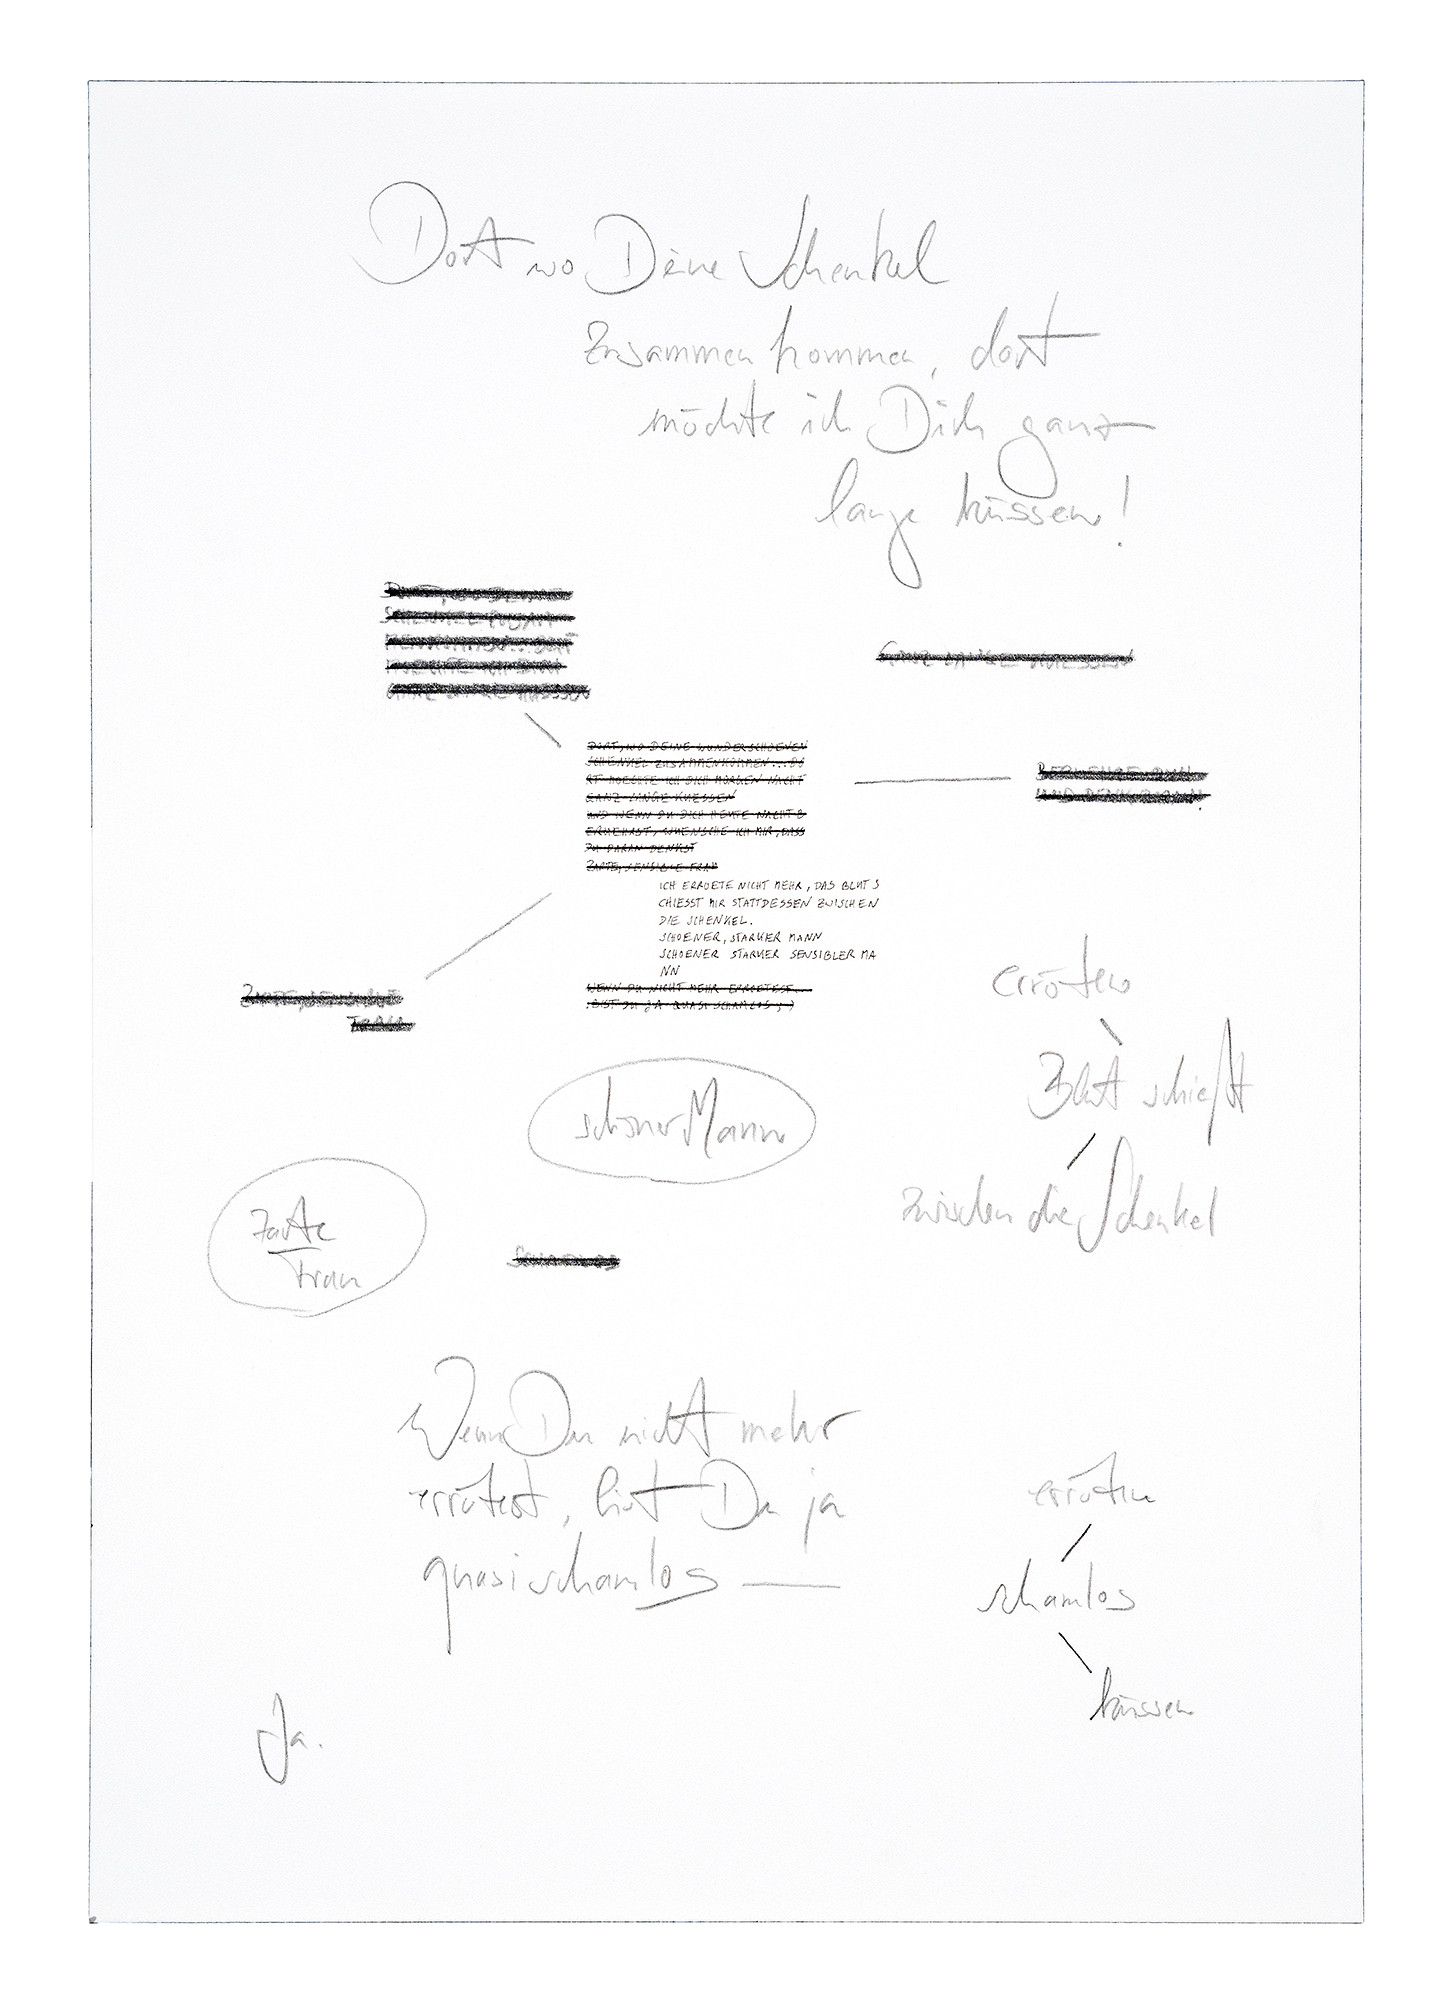 Dort wo Deine Schenkel
zusammen kommen, dort
möchte ich Dich ganz
lange küssen!
GANZ LANGE KUESSEN
DORT, WO DEINE WUNDERSCHOENEN
SCHENKEL ZUSAMMENKOMMEN...DO
RT MOECHTE ICH DICH MORGEN NACHT
GANZ LANGE KUESSEN
UND WENN DU DICH HEUTE NACHT B
ERUEHRST, WUENSCHE ICH MIR, DASS
DU DARAN DENKST
ZARTE, SENSIBLE FRAU
ICH ERROETE NICHT MEHR, DAS BLUT S
CHIESST MIR STATTDESSEN ZWISCHEN
DIE SCHENKEL.
SCHOENER, STARKER MANN
SCHOENER STARKER SENSIBLER MA
NN
WENN DU NICHT MEHR ERROETEST...
BIST DU JA QUASI SCHAMLOS ; )
erröten
Blut schießt
zwischen die Schenkel
schöner Mann
zarte
Frau
Wenn Du nicht mehr
errötest, bist Du ja
quasi schamlos —
erröten
schamlos
küssen
Ja.